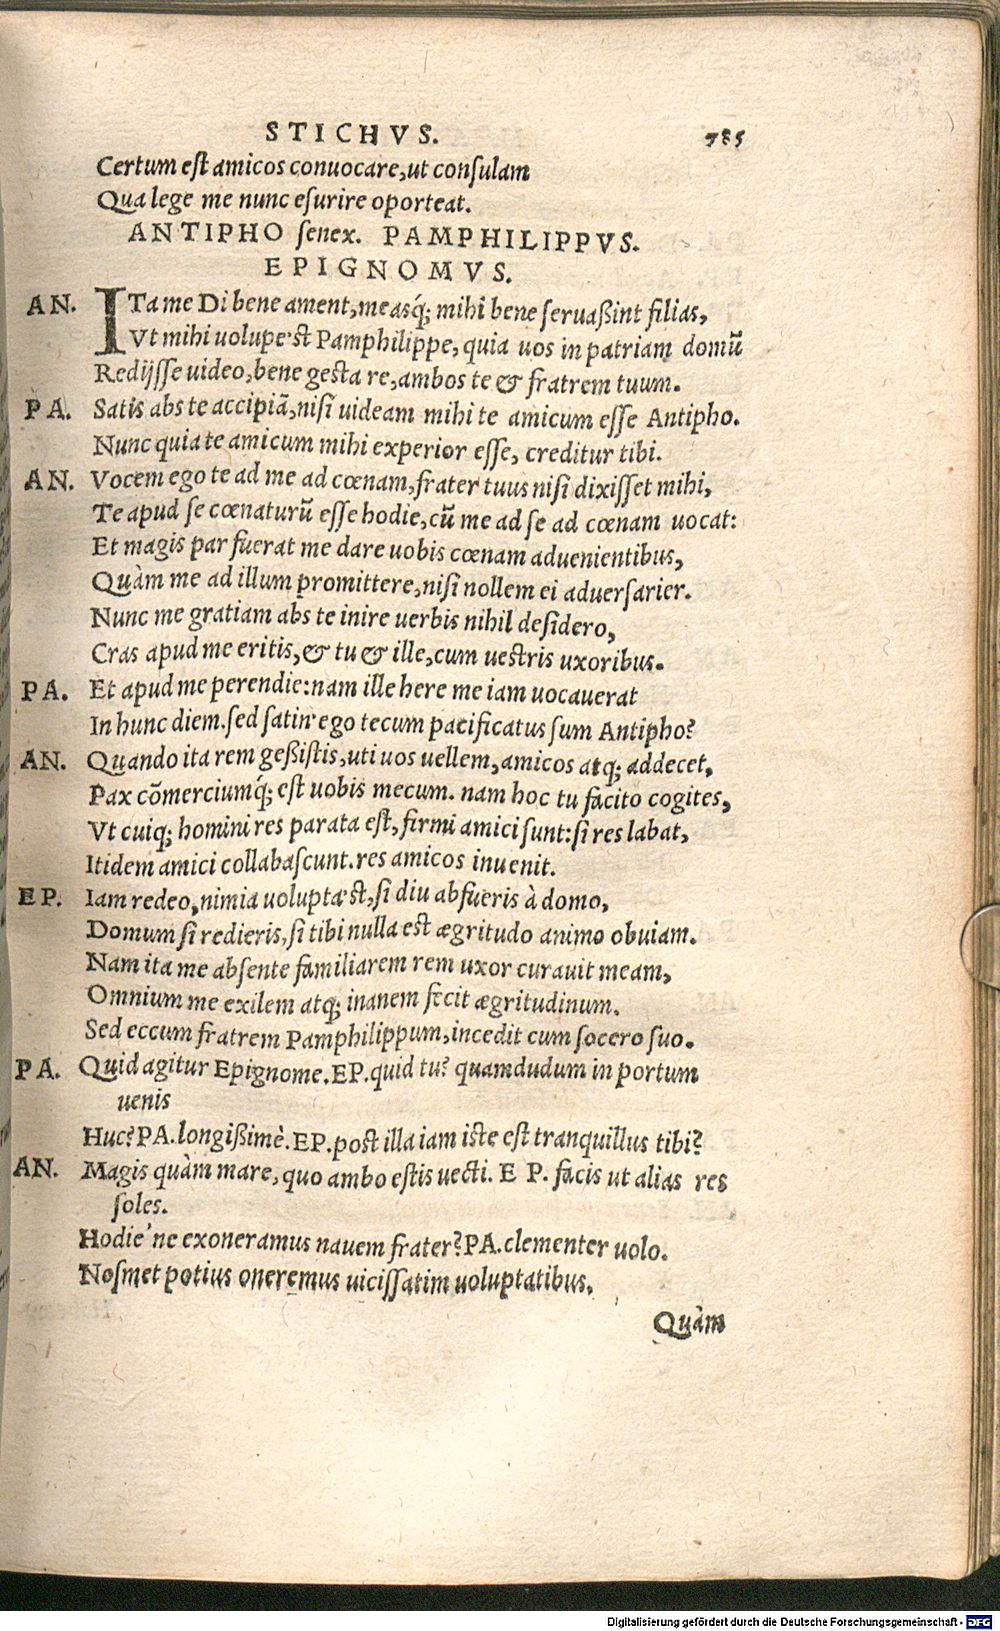 STICHVS. 785
Certum est amicos conuocare, ut consulam
Qua lege me nunc esurire oporteat.
ANTIPHO senex. PAMPHILIPPVS.
EPIGNOMVS.
AN. ITa me Di bene ament, measq́; mihi bene seruaßint filias,
Vt mihi uolupe'st Pamphilippe, quia uos in patriam domū
Redijsse uideo, bene gesta re, ambos te & fratrem tuum.
PA. Satis abs te accipiā, nisi uideam mihi te amicum esse Antipho.
Nunc quia te amicum mihi experior esse, creditur tibi.
AN. Vocem ego te ad me ad cœnam, frater tuus nisi dixisset mihi,
Te apud se cœnaturū esse hodie, cū me ad se ad cœnam uocat:
Et magis par fuerat me dare uobis cœnam aduenientibus,
Quàm me ad illum promittere, nisi nollem ei aduersarier.
Nunc me gratiam abs te inire uerbis nihil desidero,
Cras apud me eritis, & tu & ille, cum uestris uxoribus.
PA. Et apud me perendie: nam ille here me iam uocauerat
In hunc diem. sed satin' ego tecum pacificatus sum Antipho?
AN. Quando ita rem geßistis, uti uos uellem, amicos atq; addecet,
Pax cōmerciumq́; est uobis mecum. nam hoc tu facito cogites,
Vt cuiq; homini res parata est, firmi amici sunt: si res labat,
Itidem amici collabascunt. res amicos inuenit.
EP. Iam redeo, nimia uolupta'st, si diu abfueris à domo,
Domum si redieris, si tibi nulla est ægritudo animo obuiam.
Nam ita me absente familiarem rem uxor curauit meam,
Omnium me exilem atq; inanem fecit ægritudinum.
Sed eccum fratrem Pamphilippum, incedit cum socero suo.
PA. Quid agitur Epignome. EP. quid tu? quamdudum in portum
uenis
Huc? PA. longißimè. EP. post illa iam iste est tranquillus tibi?
AN. Magis quàm mare, quo ambo estis uecti. EP. facis ut alias res
soles.
Hodie'ne exoneramus nauem frater? PA. clementer uolo.
Nosmet potius oneremus uicissatim uoluptatibus.
Quàm
Digitalisierung gefördert durch die Deutsche Forschungsgemeinschaft - DFG